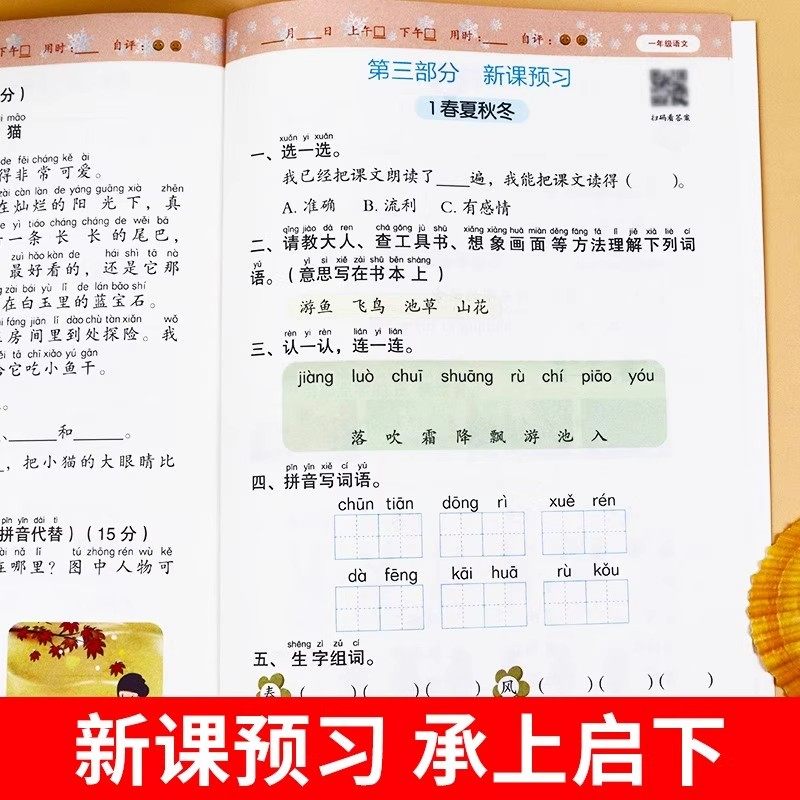 下午 用时：___ 自评：
分）
māo
猫
de fēi cháng kě ài
得非常可爱。
zài càn làn de yáng guāng xià zhēn
在灿烂的阳光下，真
yì tiáo cháng cháng de wěi bā
一条长长的尾巴，
zuì hǎo kàn de hái shì tā nà
最好看的，还是它那
zài bái yù lǐ de lán bǎo shí
在白玉里的蓝宝石。
fáng jiān lǐ dào chù tàn xiǎn wǒ
房间里到处探险。我
tā chī xiǎo yú gān
它吃小鱼干。
、____和____。
，把小猫的大眼睛比
pīn yīn dài tì
拼音代替）（15分）
nǎ lǐ tú zhōng rén wù kě
哪里？图中人物可
___月___日 上午 下午 用时：___ 自评：
一年级语文
第三部分 新课预习
扫码看答案
1 春夏秋冬
xuǎn yi xuǎn
一、选一选。
我已经把课文朗读了____遍，我能把课文读得（ ）。
A. 准确 B. 流利 C. 有感情
qǐng jiào dà ren chá gōng jù shū xiǎng xiàng huà miàn děng fāng fǎ lǐ jiě xià liè cí
二、请教大人、查工具书、想象画面等方法理解下列词
yǔ yì si xiě zài shū běn shàng
语。（意思写在书本上）
游鱼 飞鸟 池草 山花
rèn yi rèn lián yi lián
三、认一认，连一连。
jiàng luò chuī shuāng rù chí piāo yóu
落 吹 霜 降 飘 游 池 入
pīn yīn xiě cí yǔ
四、拼音写词语。
chūn tiān dōng rì xuě rén
dà fēng kāi huā rù kǒu
shēng zì zǔ cí
五、生字组词。
春（ ）（ ）（ ） 风（ ）（ ）（ ）
新课预习 承上启下